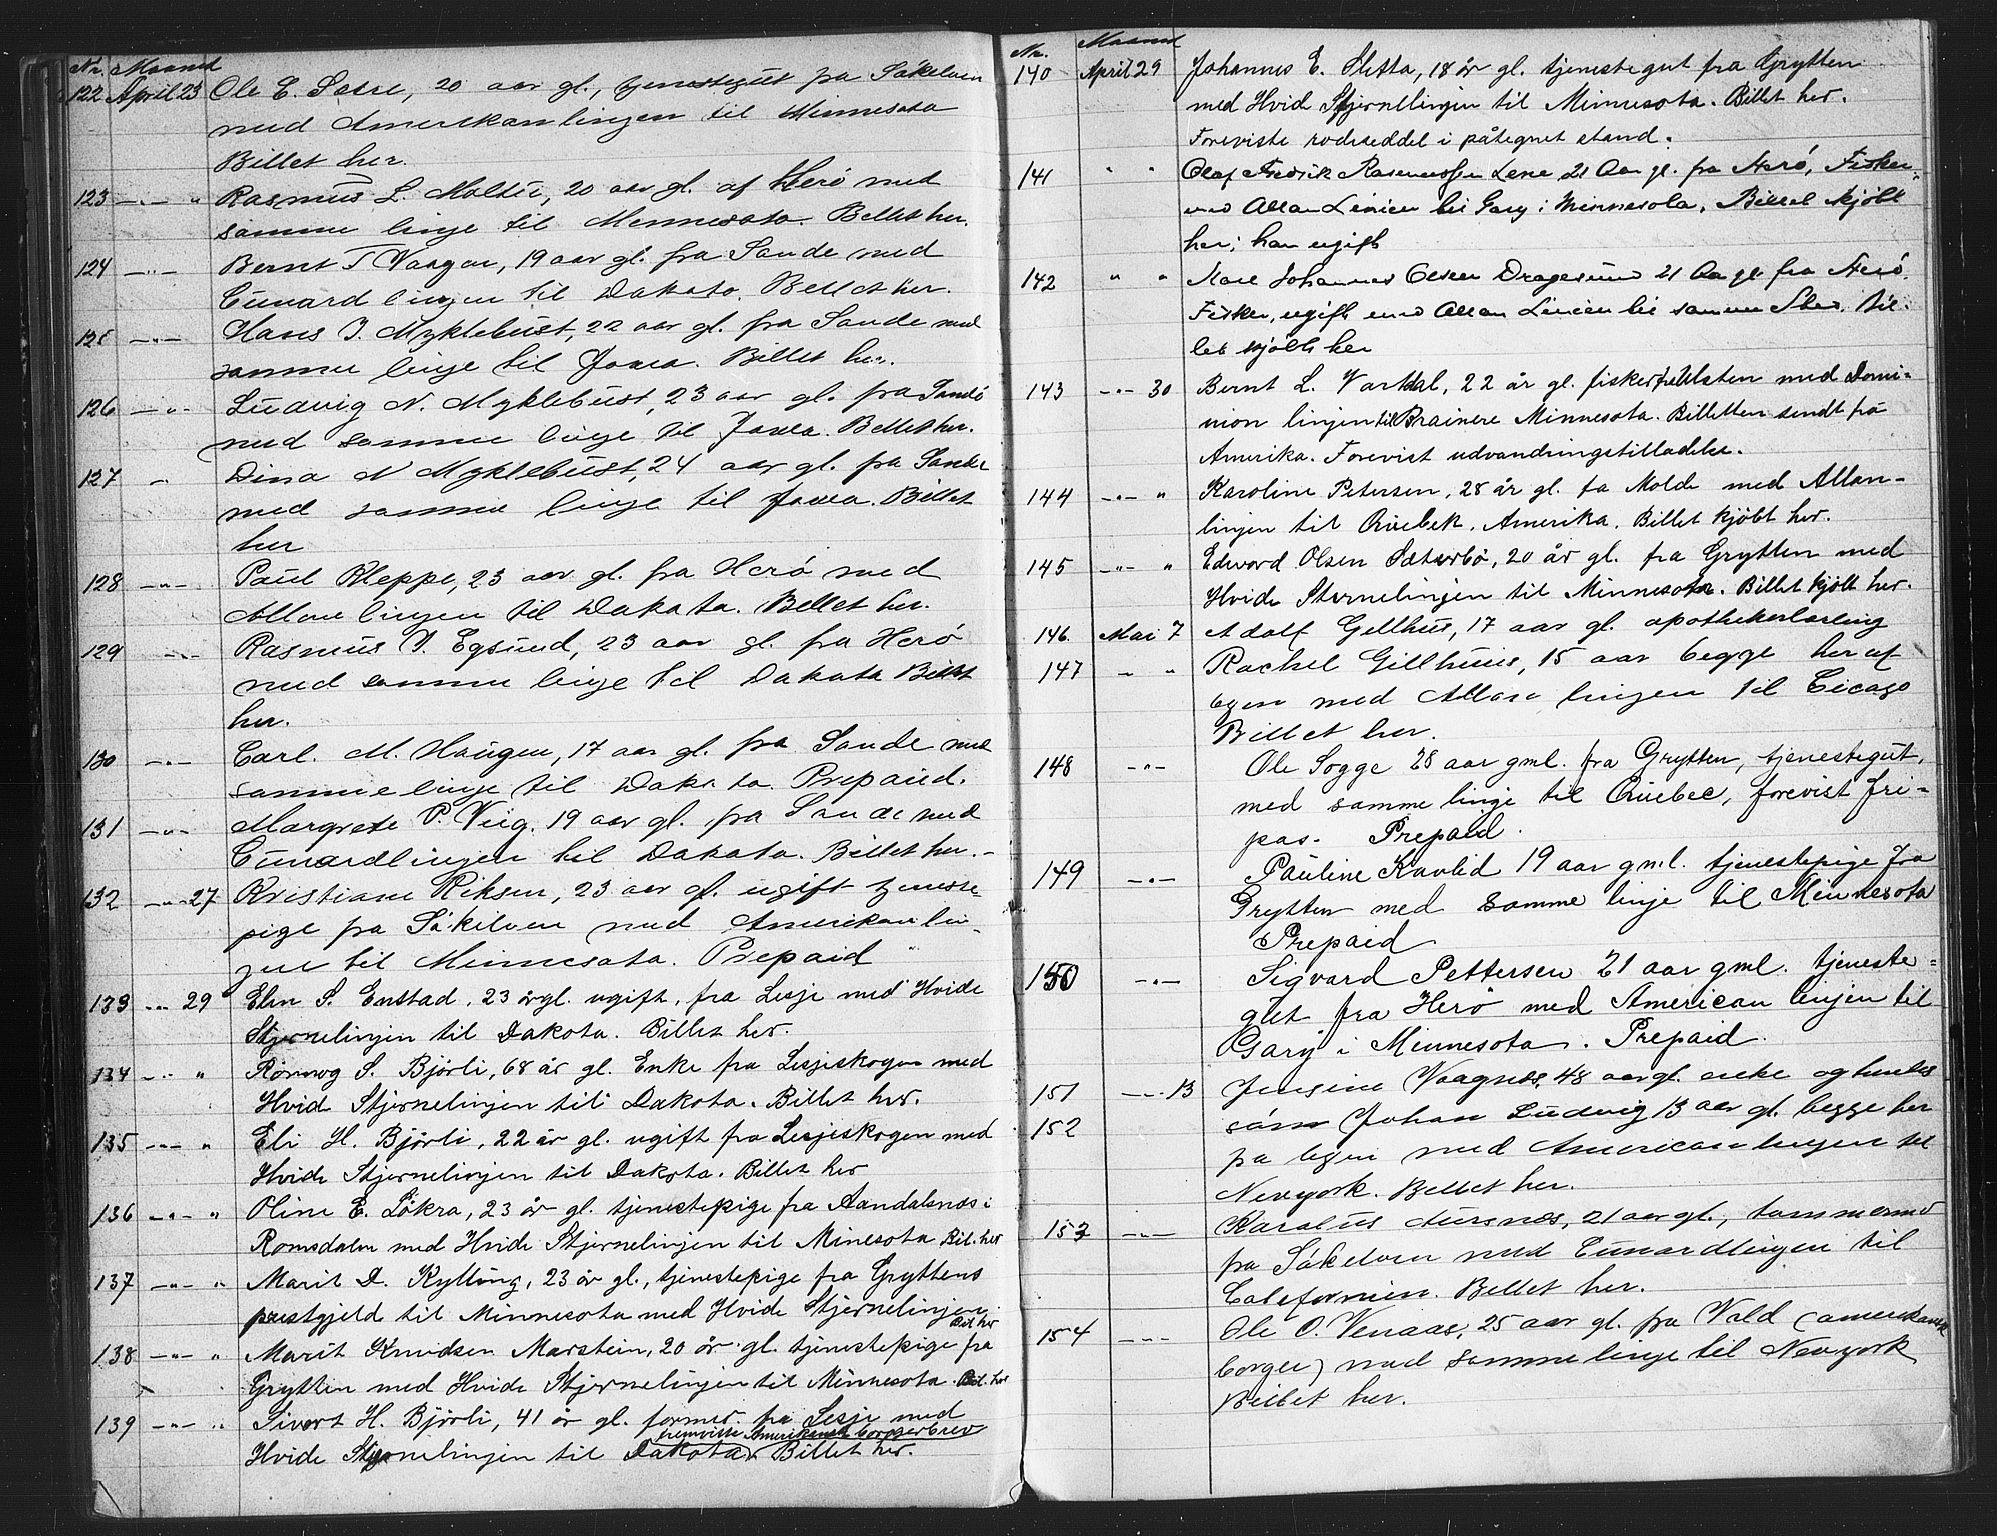 Nr. Maaned
122 April 23 Ole E. Sætre, 20 aar gl., tjenestegut fra Søkelven
med Amerikanlinjen til Minnesota
Billet her.
123 —"— " Rasmus L. Moltu, 20 aar gl. af Herø med
samme linje til Minnesota. Billet her.
124 —"— Bernt T Vaagen, 19 aar gl. fra Sande med
Cunard linjen til Dakota. Billet her.
125 —"— Hans J. Myklebust, 22 aar gl. fra Sande med
samme linje til Jowa. Billet her.
126 —"— Ludvig N. Myklebust, 23 aar gl. fra Sandø
med samme linje til Jowa. Billet her.
127 " Dina N Myklebust, 24 aar gl. fra Sande
med samme linje til Jowa. Billet
her
128 —"— Paul Kleppe, 23 aar gl. fra Herø med
Allan linjen til Dakota. Billet her.
129 —"— Rasmus J. Egsund, 23 aar gl. fra Herø
med samme linje til Dakota Billet
her.
130 —"— Carl. M. Haugen, 17 aar gl. fra Sande med
samme linje til Dakota. Prepaid.
131 —"— Margrete P. Vig, 19 aar gl. fra Sande med
Cunardlinjen til Dakota. Billet her.
132 —"— 27 Kristiane Riksen, 23 aar gl. ugift tjeneste-
pige fra Søkelven med Amerikanlin-
jen til Minnesota. Prepaid
133 —"— 29 Elen S. Enstad, 23 år gl. ugift, fra Lesje med Hvide
Stjernelinjen til Dakota. Billet her.
134 —"— " Rønnog S. Bjørli, 68 år gl. Enke fra Lesjeskogen med
Hvid Stjernelinjen til Dakota. Billet her.
135 —"— " Eli H. Bjørli, 22 år gl. ugift fra Lesjeskogen med
Hvide Stjernelinjen til Dakota. Billet her
136 —"— " Oline E. Løkra, 23 år gl. tjenestepige fra Aandalsnæs i
Romsdalen med Hvide Stjernelinjen til Minesota Bil. her
137 —"— " Marit D. Kylling, 23 år gl., tjenestepige fra Gryttens
prestgjeld til Minnesota med Hvide Stjernelinjen.
Bil. her
138 —"— " Marit Knudsen Marstein, 20 år gl. tjenestepige fra
Grytten med Hvide Stjernelinjen til Minnesota. Bil. her
139 —"— " Sivert H. Bjørli, 41 år gl. farmer fra Lesje med
fremviste Amerikansk borgerbrev
Hvide Stjernelinjen til Dakota. Billet her.
Nr. Maaned
140 April 29 Johannes E. Sletta, 18 år gl. tjenestegut fra Grytten
med Hvid Stjernelinjen til Minnesota. Billet her.
Foreviste rodeseddel i påtegnet stand.
141 " " Olaf Fredrik Rasmussen Lene 21 Aar gl. fra Herø, Fisker,
med Allan Linien til Gary i Minnesota, Billet kjøbt
her; han ugift
142 " " Karl Johannes Olsen Dragesund 21 Aar gl. fra Herø.
Fisker, ugift med Allan Linien til samme Sted. Bil-
let kjøbt her
143 —"— 30 Bernt L. Vartdal, 22 år gl. fisker fra Ulsten med Domi-
nion linjen til Brainere Minnesota. Billetten sendt fra
Amerika. Forevist udvandringstilladelse.
144 —"— " Karoline Petersen, 28 år gl. fa Molde med Allan-
linjen til Quebek. Amerika. Billet kjøbt her.
145 —"— " Edward Olsen Sæterbø, 20 år gl. fra Grytten med
Hvide Sternelinjen til Minnesota. Billet kjøbt her.
146 Mai 7 Adolf Gellhus, 17 aar gl. apothekerlærling
147 — " Rachel Gillhuus, 15 aar begge her af
byen med Allan linjen til Cicago
Billet her.
148 —"— Ole Sogge 28 aar gml. fra Grytten, tjenestegut,
med samme linje til Quebec, forevist fri-
pas. Prepaid.
149 —"— Pauline Kavlid 19 aar gml. tjenestepige fra
Grytten med samme linje til Minnesota
Prepaid
150 —"— Sigvard Pettersen 21 aar gml. tjeneste-
gut fra Herø med American linjen til
Gary i Minnesota. Prepaid.
151 —"— 13 Jensine Vaagnæs, 48 aar gl. enke og hendes
152 søn Johan Ludvig 13 aar gl. begge her
fra byen med Americanlinjen til
Newyork. Billet her.
153 —"— Karolus Aursnes, 21 aar gl., tømmermd
fra Søkelven med Cunardlinjen til
Californien. Billet her.
154 —"— Ole O. Venaas, 25 aar gl. fra Vold (amerikansk
borger) med samme linje til Newyork
Billet her.